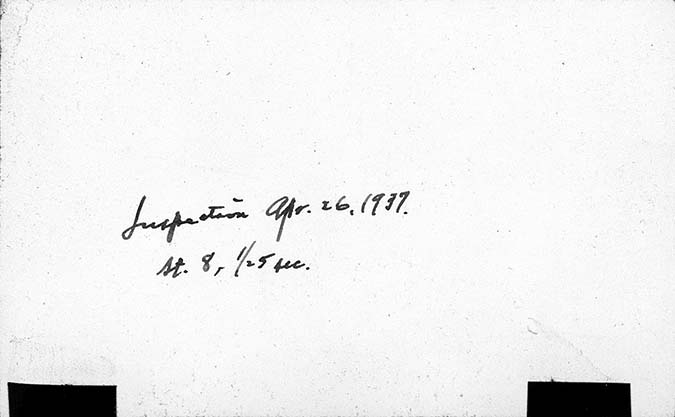 Inspection Apr. 26, 1937.
St. 8, 1/25 sec.